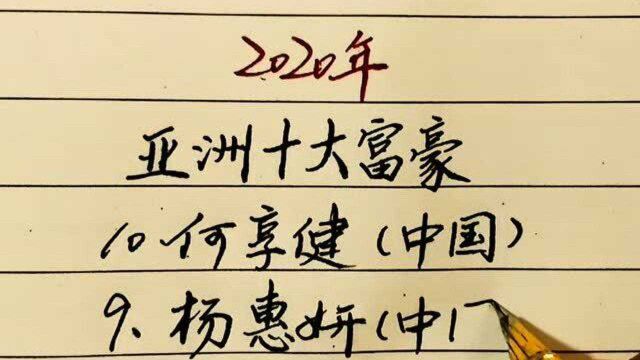 2020年
亚洲十大富豪
10.何享健(中国)
9、杨惠妍(中